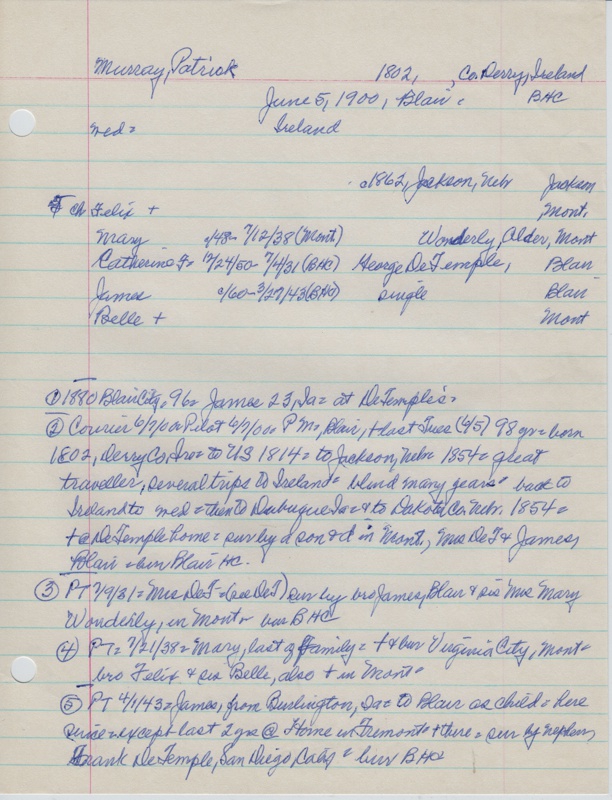 Murray, Patrick 1802, , Co. Derry, Ireland
June 5, 1900, Blair = BHC
med = Ireland
c1862, Jackson, Nebr Jackson
ch Felix + , Mont.
Mary c/48 - 7/12/38 (Mont) Wonderly, Alder, Mont
Catherine F = 12/24/50 - 7/4/31 (BHC) George DeTemple, Blair
James c/60 - 3/27/43 (BHC) single Blair
Belle + Mont
① 1880 Blair City = 96 = James 23, Ia = at DeTemple's =
② Courier 6/7/00 = Pilot 6/7/00 = P M =, Blair, + last Tues (6/5) 98 yr = born
1802, Derry Co. Ire = to US 1814 = to Jackson, Nebr 1854 = great
traveller, several trips to Ireland = blind many years = back to
Ireland to med = then to Dubuque Ia = & to Dakota Co. Nebr. 1854 =
+ @ DeTemple home = sur by d son & d in Mont., Mrs DeT & James,
Blair = bur Blair HC.
③ PT 7/9/31 = Mrs DeT = (see DeT) sur by bro James, Blair & sis Mrs Mary
Wonderly, in Mont = bur BHC
④ PT = 7/21/38 = Mary, last of family = + & bur Virginia City, Mont =
bro Felix & sis Belle, also + in Mont =
⑤ PT 4/1/43 = James, from Burlington, Ia = to Blair as child = here
since = except last 2 yrs @ Home in Fremont = + there = sur by nephew,
Frank DeTemple, San Diego, Calif = bur BHC